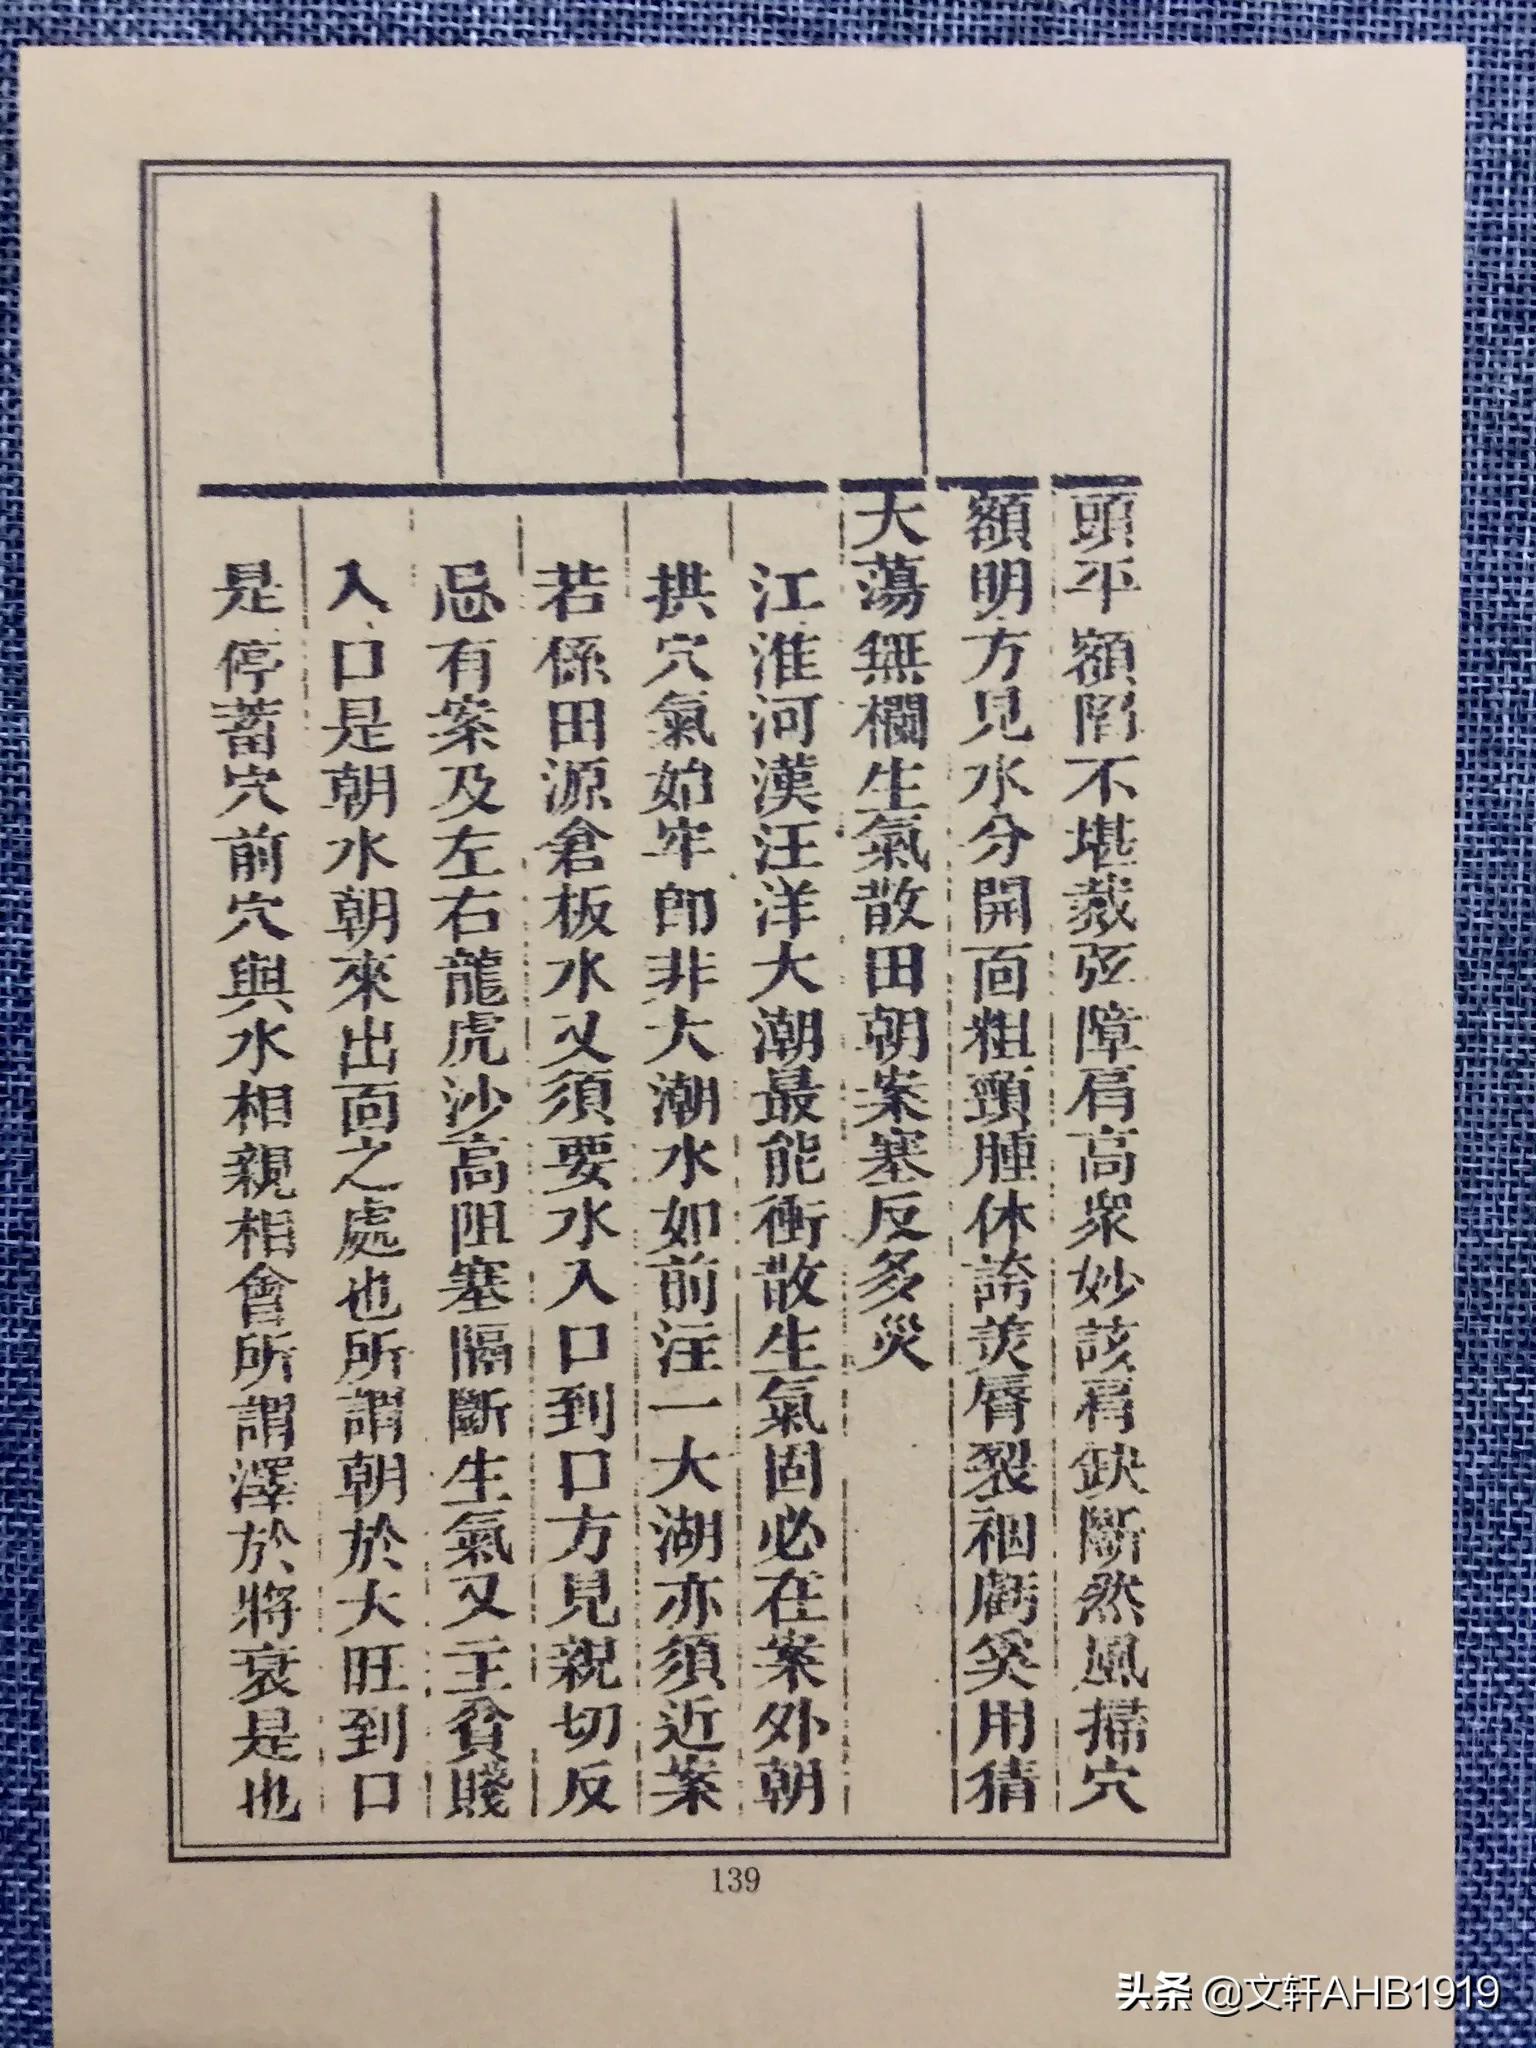 頭平額陷不堪裁弦障肩高眾妙該肩缺斷然風掃穴
額明方見水分開面粗頸腫休誇羡唇裂裀虧奚用猜
大蕩無欄生氣散田朝案塞反多災
江淮河漢汪洋大潮最能衝散生氣固必在案外朝
拱穴氣始牢卽非大潮水如前注一大湖亦須近案
若係田源倉板水又須要水入口到口方見親切反
忌有案及左右龍虎沙高阻塞隔斷生氣又主貧賤
入口是朝水朝來出面之處也所謂朝於大旺到口
是停蓄穴前穴與水相親相會所謂澤於將衰是也
139
头条 @文轩AHB1919